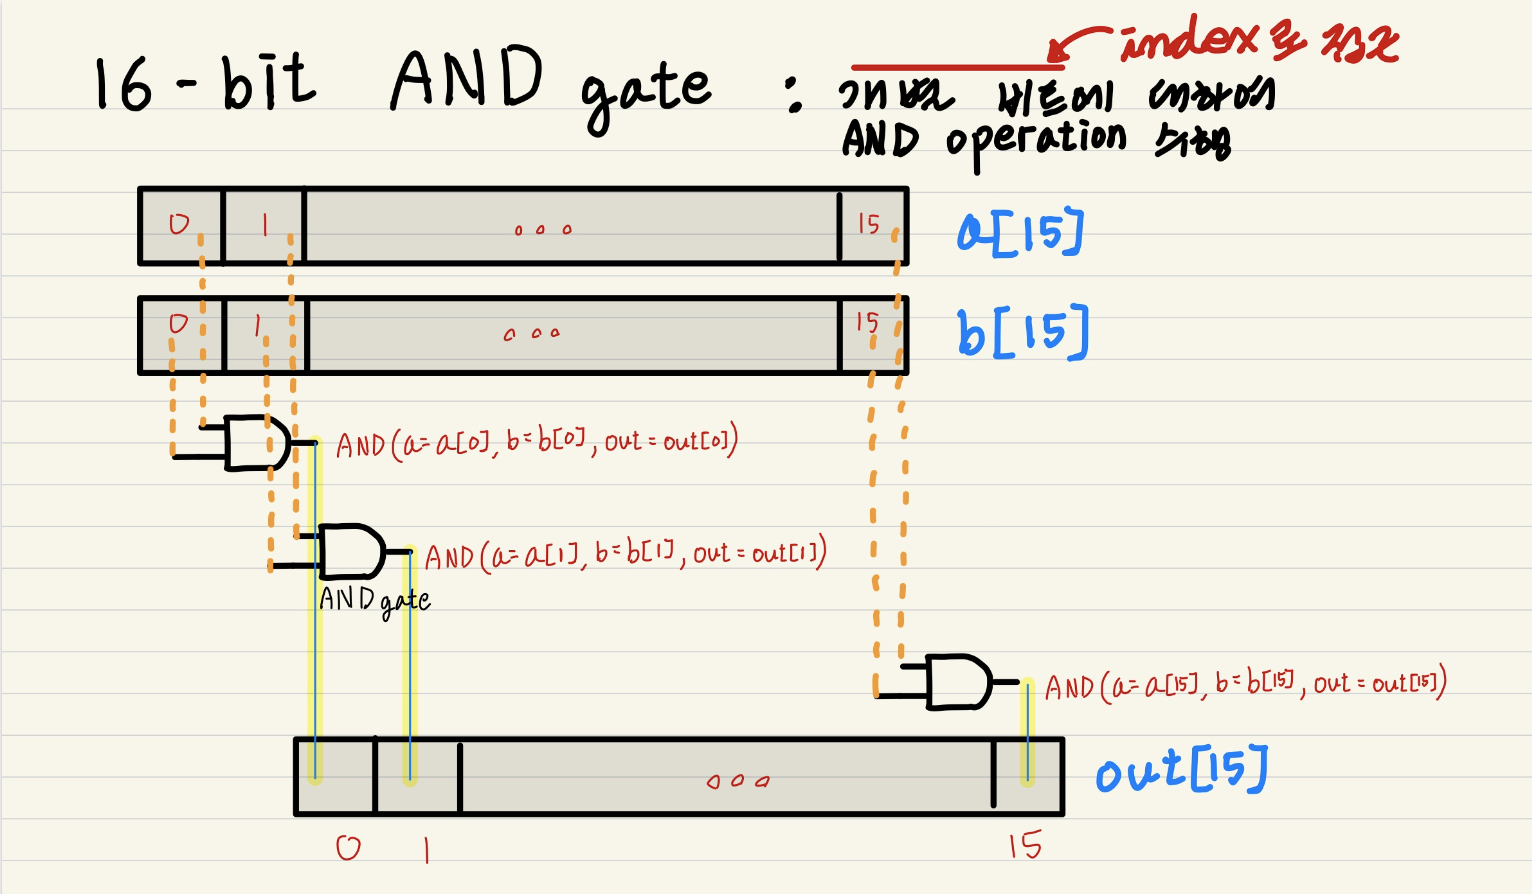 index로 접근
16-bit AND gate : 개별 비트에 대하여
AND operation 수행
0 1 ... 15 a[15]
0 1 ... 15 b[15]
AND(a=a[0], b=b[0], out=out[0])
AND(a=a[1], b=b[1], out=out[1])
AND gate
AND(a=a[15], b=b[15], out=out[15])
... out[15]
0 1 15